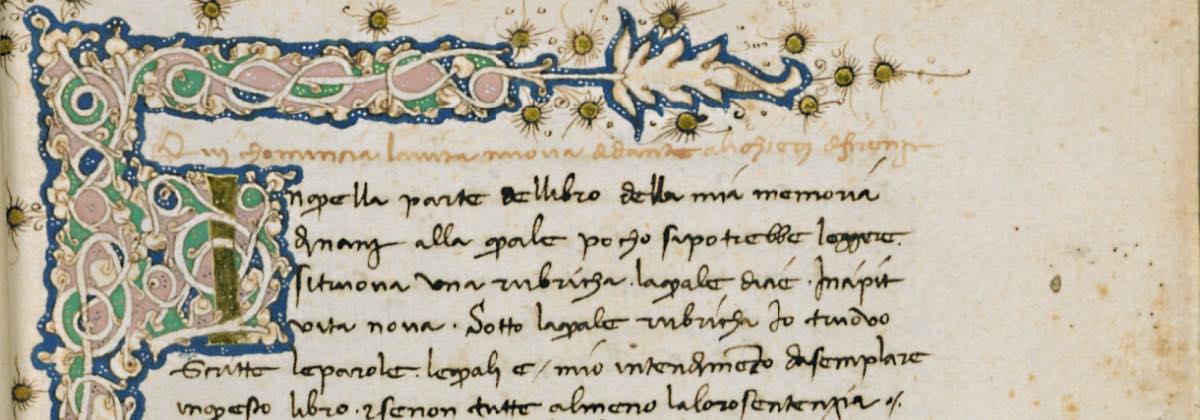 Qui chomincia lavita nuova di dante alighieri difirenze
Inquella parte dellibro della mia memoria
dinanzi alla quale pocho sipotrebbe leggere.
sitruova una rubricha. laquale dicie. Incipit
vita nova. Sotto laquale rubricha Io truovo
Scritte leparole. lequali e/ mio intendimento dasemplare
inquesto libro. et senon tutte almeno lalorosentenzia